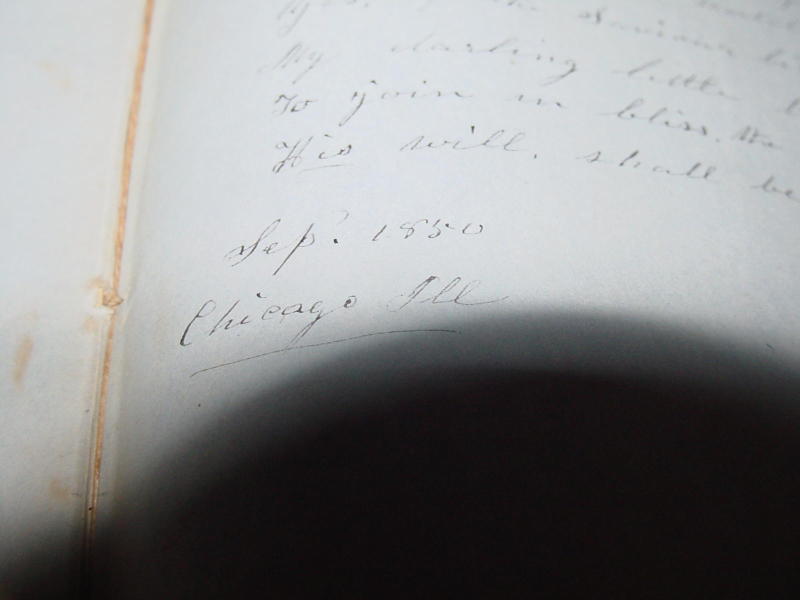 Saviour
My darling little
To join in bliss. the
His will, shall be
Sep! 1850
Chicago Ill